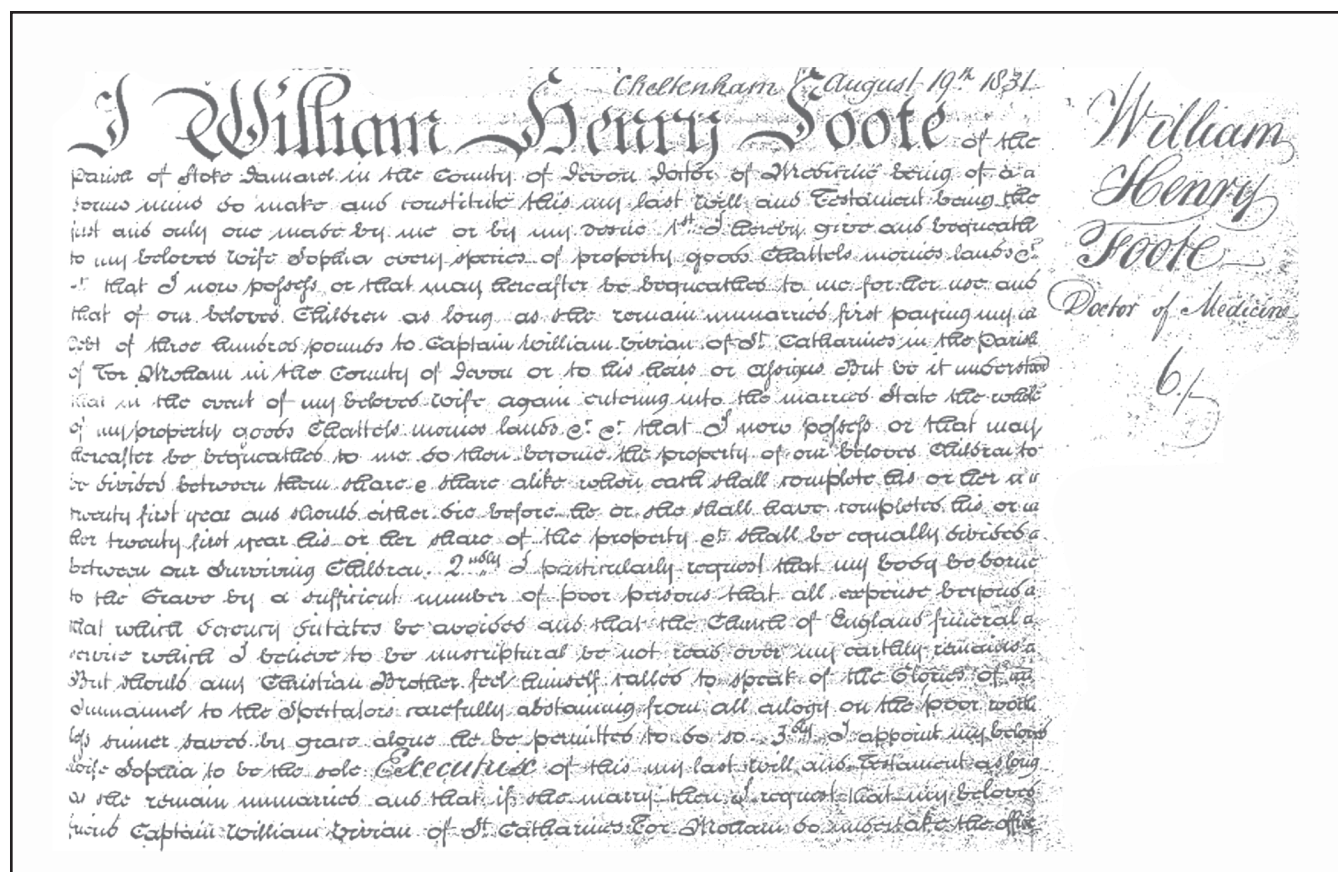 Cheltenham August 19th 1831
I William Henry Foote of the
parish of Stoke Damarel in the County of Devon Doctor of Medicine being of a
sound mind do make and constitute this my last Will and Testament being the
first and only one made by me or by my desire 1st I hereby give and bequeath
to my beloved Wife Sophia every species of property goods Chattels monies lands &c
&c that I now possess or that may hereafter be bequeathed to me for her use and
that of our beloved Children as long as she remain unmarried first paying my
debt of three hundred pounds to Captain William Vivian of St Catharines in the Parish
of Tor Moham in the County of Devon or to his heirs or assigns But be it understood
that in the event of my beloved Wife again entering into the married State the whole
of my property goods Chattels monies lands &c &c that I now possess or that may
hereafter be bequeathed to me do then become the property of our beloved Children to
be divided between them share & share alike when each shall complete his or her
twenty first year and should either die before he or she shall have completed his or
her twenty first year his or her share of the property &c shall be equally divided
between our Surviving Children. 2ndly I particularly request that my body be borne
to the Grave by a sufficient number of poor persons that all expense beyond
that which decency dictates be avoided and that the Church of England funeral
service which I believe to be unscriptural be not read over my earthly remains
But should any Christian Brother feel himself called to speak of the Glories of
Immanuel to the Spectators carefully abstaining from all eulogy on the poor worth
less sinner saved by grace alone he be permitted to do so 3dly I appoint my beloved
Wife Sophia to be the sole Executrix of this my last Will and Testament as long
as she remain unmarried and that if she marry then I request that my beloved
friend Captain William Vivian of St Catharines Tor Moham do undertake the office
William
Henry
Foote
Doctor of Medicine
6/5